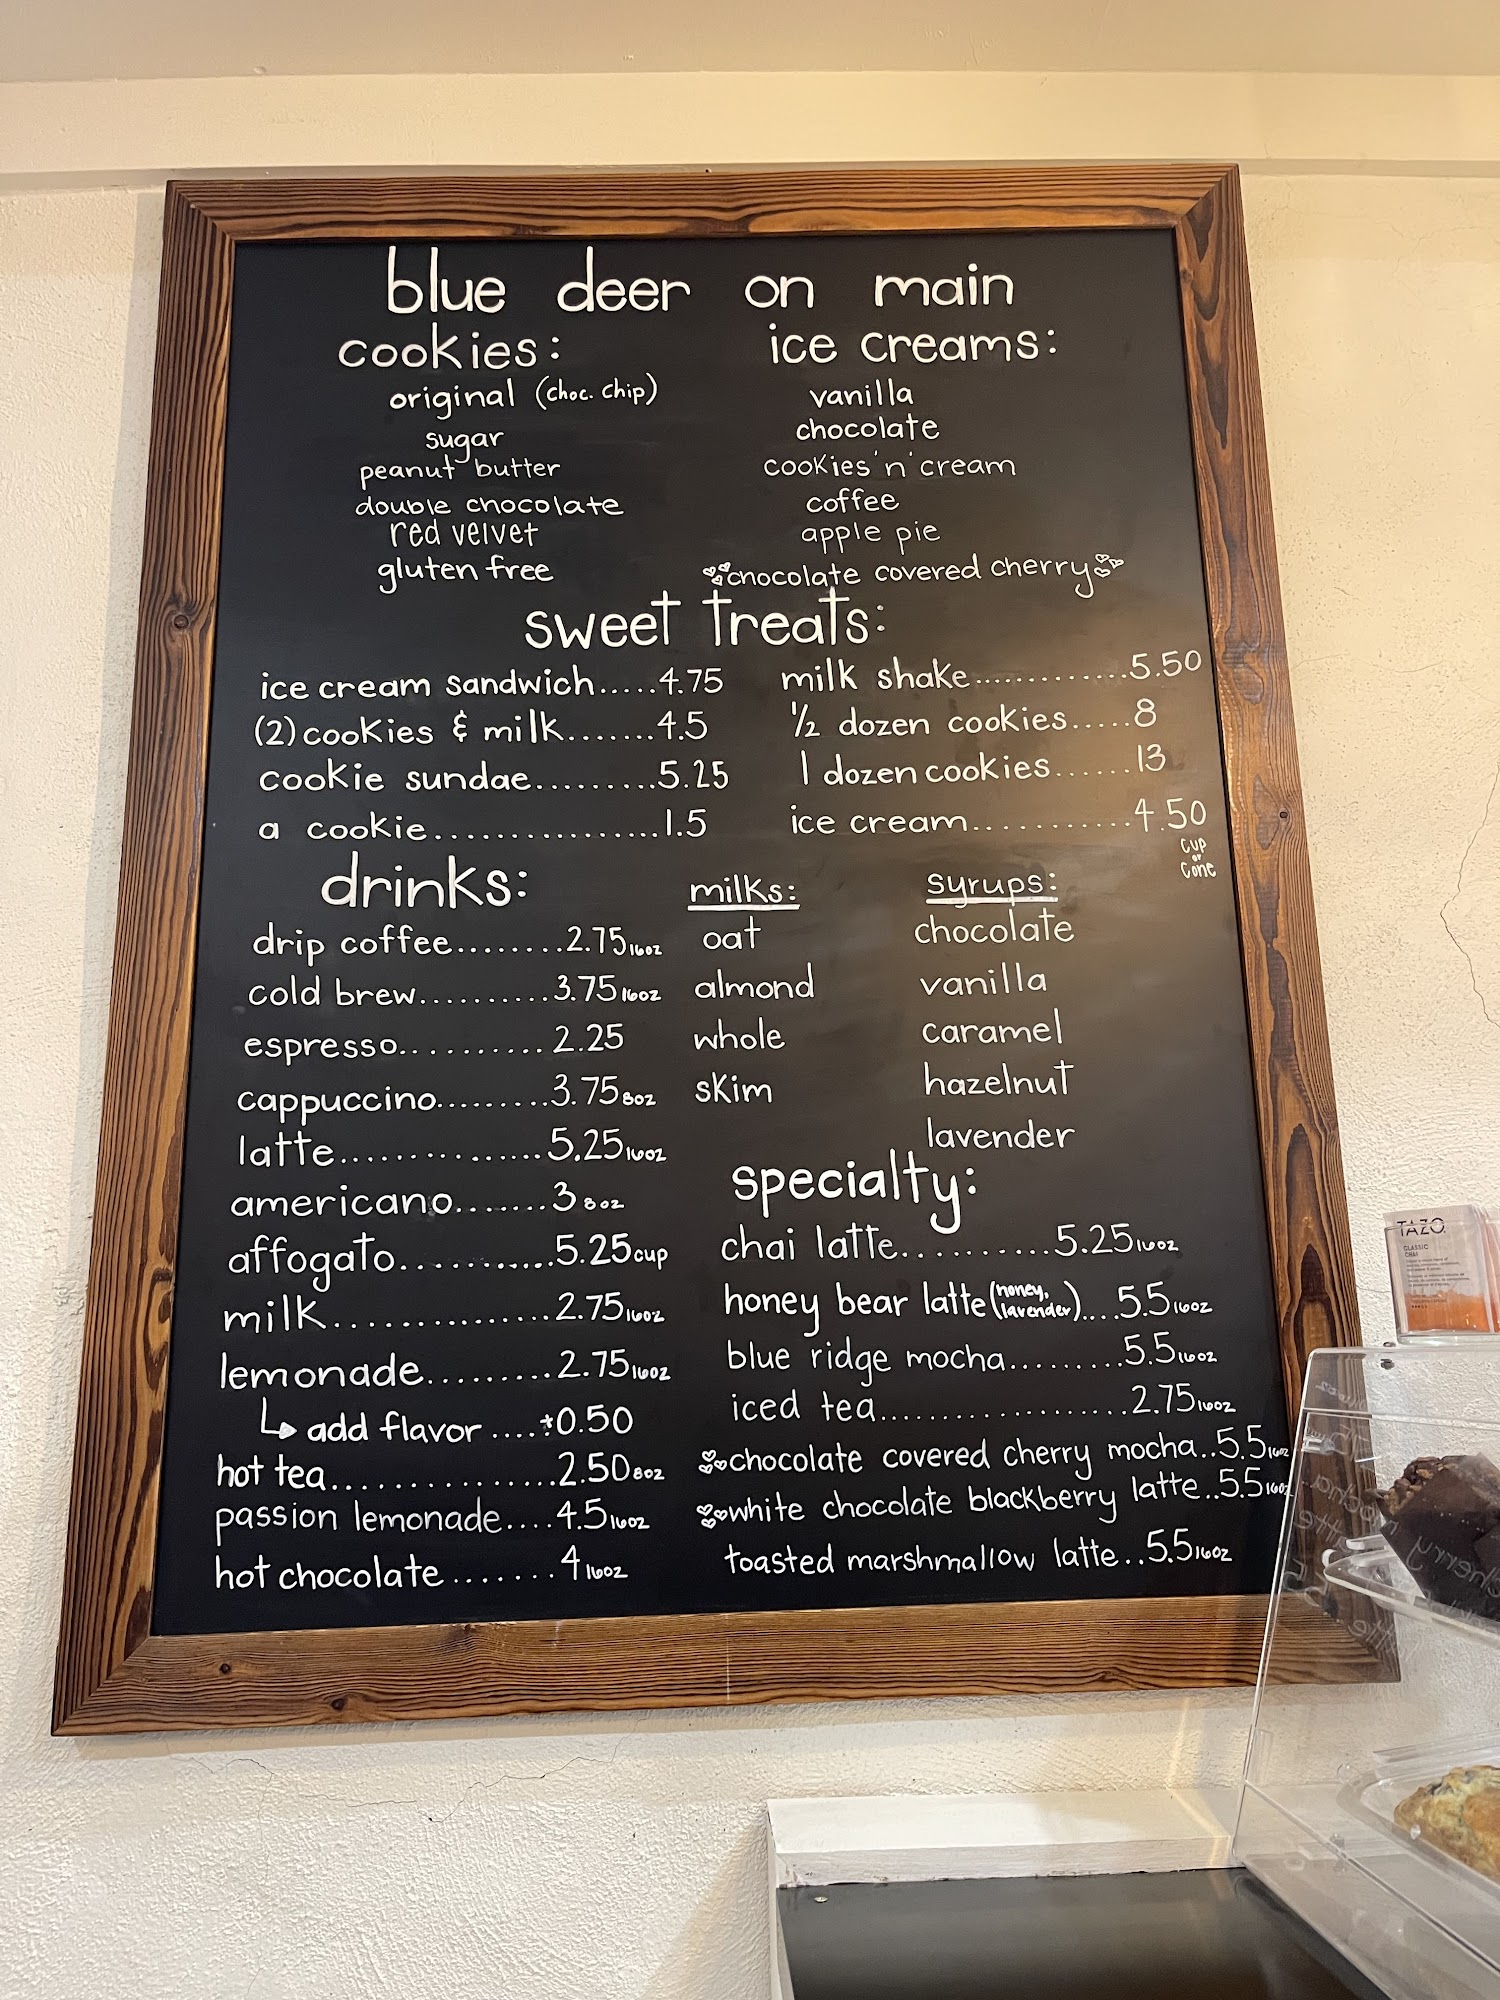 blue deer on main
cookies:
original (choc. chip)
sugar
peanut butter
double chocolate
red velvet
gluten free
ice creams:
vanilla
chocolate
cookies'n'cream
coffee
apple pie
chocolate covered cherry
sweet treats:
ice cream sandwich.....4.75
(2) cookies & milk.......4.5
cookie sundae.........5.25
a cookie................1.5
milk shake............5.50
1/2 dozen cookies.....8
1 dozen cookies......13
ice cream...........4.50
cup
or
cone
drinks:
drip coffee........2.75 16oz
cold brew..........3.75 16oz
espresso...........2.25
cappuccino.........3.75 8oz
latte...............5.25 16oz
americano.......3 8oz
affogato...........5.25 cup
milk................2.75 16oz
lemonade.........2.75 16oz
add flavor ....+0.50
hot tea...............2.50 8oz
passion lemonade....4.5 16oz
hot chocolate.......4 16oz
milks:
oat
almond
whole
skim
syrups:
chocolate
vanilla
caramel
hazelnut
lavender
specialty:
chai latte..........5.25 16oz
honey bear latte (honey, lavender)....5.5 16oz
blue ridge mocha.........5.5 16oz
iced tea...................2.75 16oz
chocolate covered cherry mocha..5.5 16oz
white chocolate blackberry latte..5.5 16oz
toasted marshmallow latte..5.5 16oz
TAZO
CLASSIC
CHAI